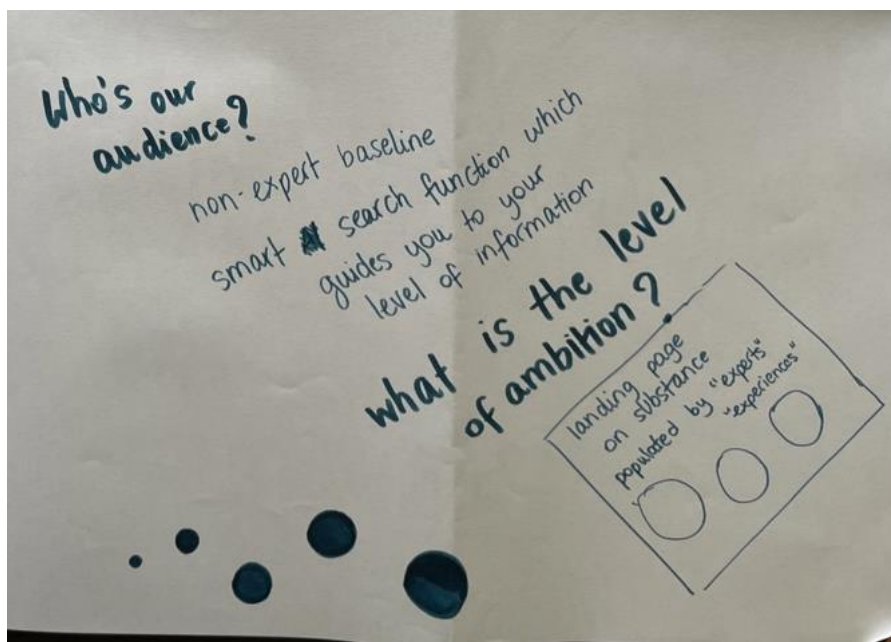 Who's our
audience?
non-expert baseline
smart search function which
guides you to your
level of information
what is the level
of ambition?
landing page
on substance
populated by "experts"
"experiences"